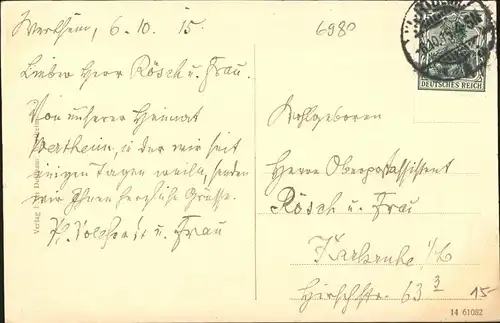 Wertheim, 6.10.15.
Lieber Herr Rösch u. Frau.
Von unserer Heimat
Wertheim, in der wir seit
einigen Tagen weilen, senden
wir Ihnen herzliche Grüsse.
u. Frau
6980
DEUTSCHES REICH
Wohlgeboren
Herrn Oberpostassistent
Rösch u. Frau
Karlsruhe i/B
Hirschstr. 63 3
15-
14 61082
Verlag